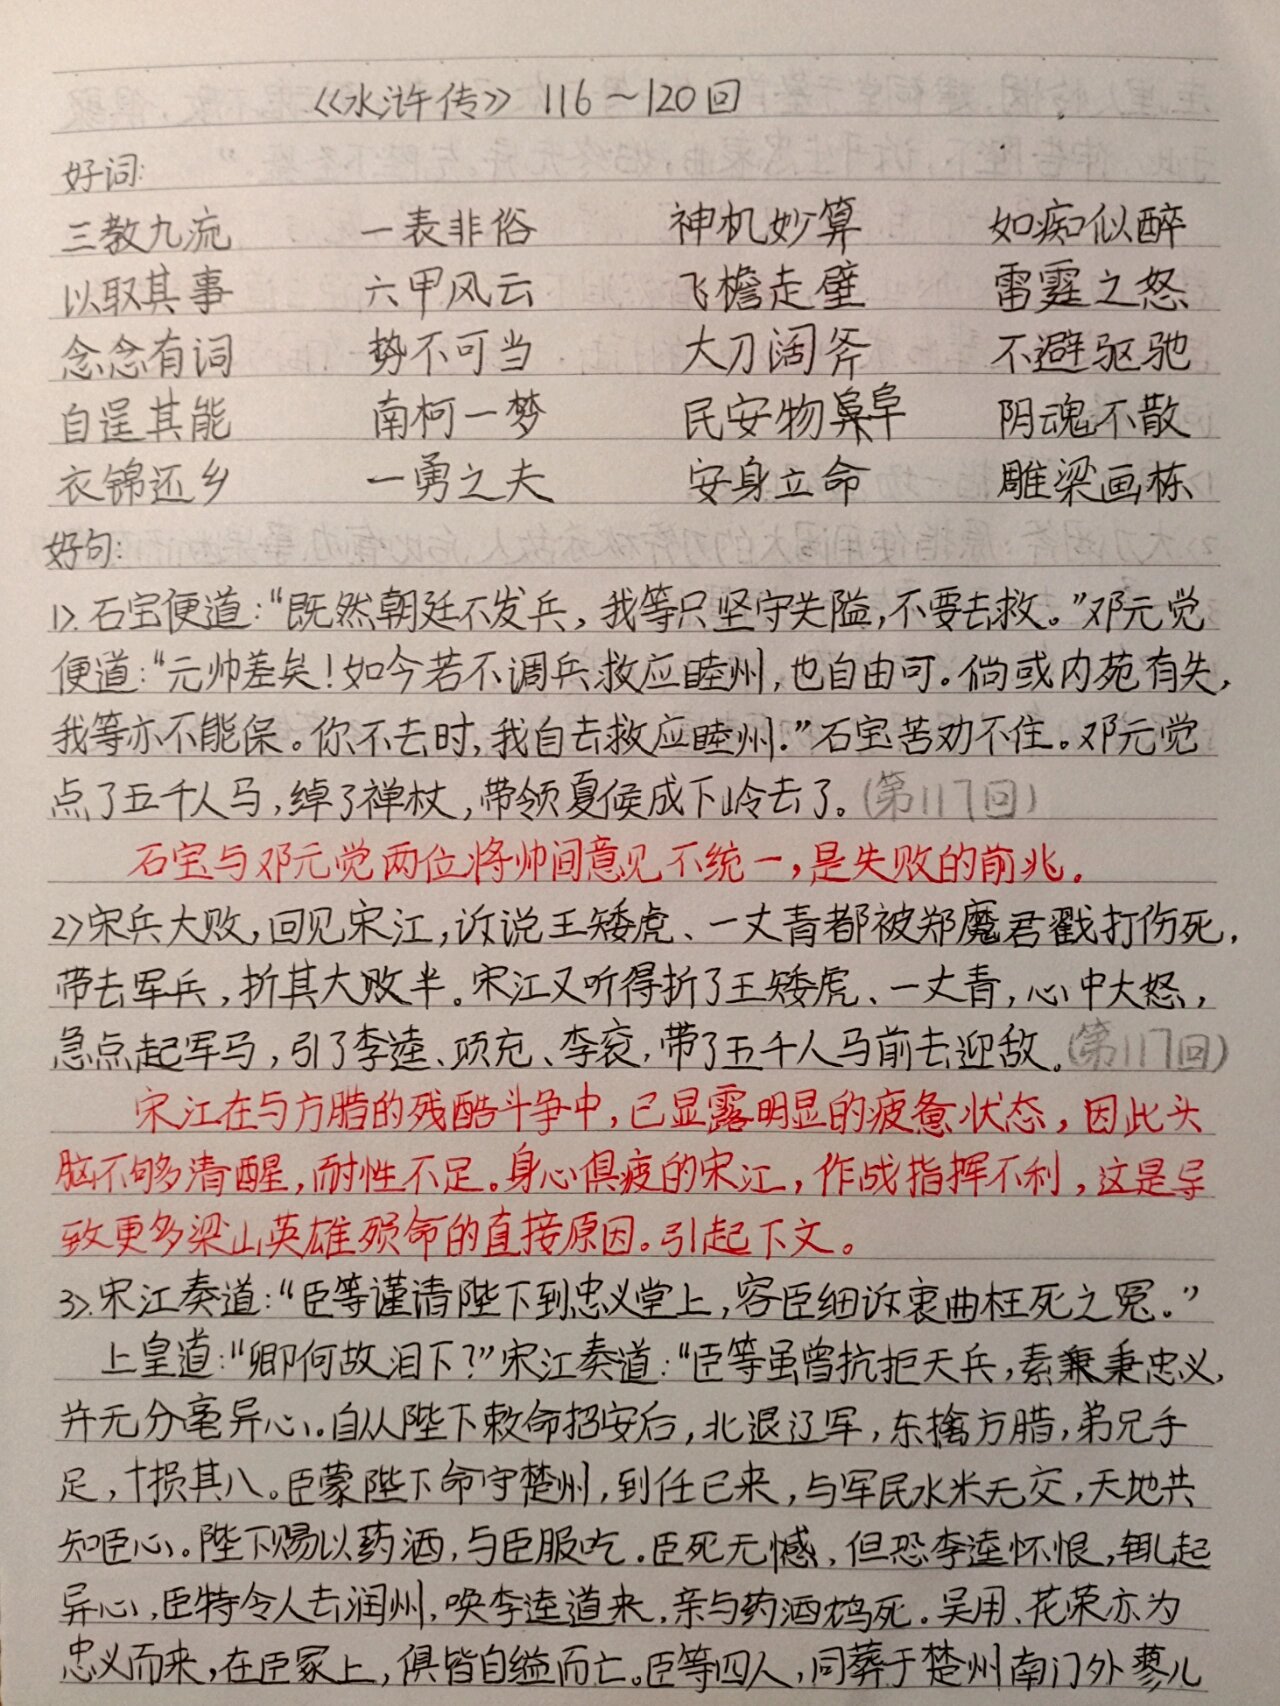 《水浒传》 116～120回
好词:
三教九流 一表非俗 神机妙算 如痴似醉
以取其事 六甲风云 飞檐走壁 雷霆之怒
念念有词 势不可当 大刀阔斧 不避驱驰
自逞其能 南柯一梦 民安物阜 阴魂不散
衣锦还乡 一勇之夫 安身立命 雕梁画栋
好句:
1>.石宝便道:“既然朝廷不发兵,我等只坚守关隘,不要去救。”邓元觉
便道:“元帅差矣!如今若不调兵救应睦州,也自由可。倘或内苑有失,
我等亦不能保。你不去时,我自去救应睦州.”石宝苦劝不住。邓元觉
点了五千人马,绰了禅杖,带领夏候成下岭去了。(第117回)
石宝与邓元觉两位将帅间意见不统一,是失败的前兆。
2>宋兵大败,回见宋江,诉说王矮虎、一丈青都被郑魔君戳打伤死,
带去军兵,折其大败半。宋江又听得折了王矮虎、一丈青,心中大怒,
急点起军马,引了李逵、项充、李衮,带了五千人马前去迎敌。(第117回)
宋江在与方腊的残酷斗争中,已显露明显的疲惫状态,因此头
脑不够清醒,耐性不足。身心俱疲的宋江,作战指挥不利,这是导
致更多梁山英雄殒命的直接原因。引起下文。
3>.宋江奏道:“臣等谨请陛下到忠义堂上,容臣细诉衷曲枉死之冤。”
上皇道:“卿何故泪下?”宋江奏道:“臣等虽曾抗拒天兵,素秉忠义,
并无分毫异心.自从陛下敕命招安后,北退辽军,东擒方腊,弟兄手
足,十损其八。臣蒙陛下命守楚州,到任已来,与军民水米无交,天地共
知臣心。陛下赐以药酒,与臣服吃.臣死无憾,但恐李逵怀恨,辄起
异心,臣特令人去润州,唤李逵道来,亲与药酒鸩死.吴用、花荣亦为
忠义而来,在臣冢上,俱皆自缢而亡。臣等四人,同葬于楚州南门外蓼儿